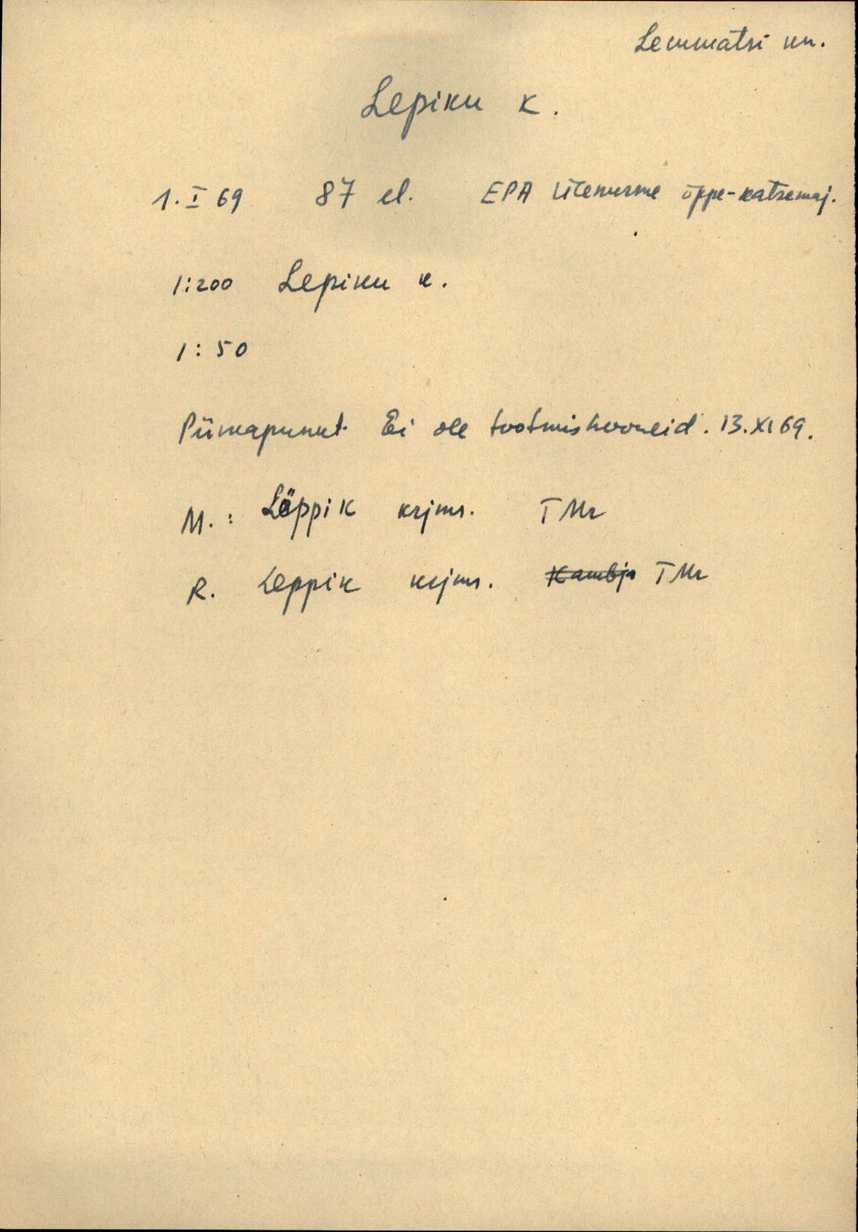 Lemmatsi kn.
Lepiku k.
1. I 69 87 el. EPA Ülenurme õppe-katsemaj.
1:200 Lepiku k.
1:50
Piimapunkt. Ei ole tootmishooneid. 13.XI 69.
M.: Löppik krjms. TMr
R. Leppik krjms. Kambja TMr